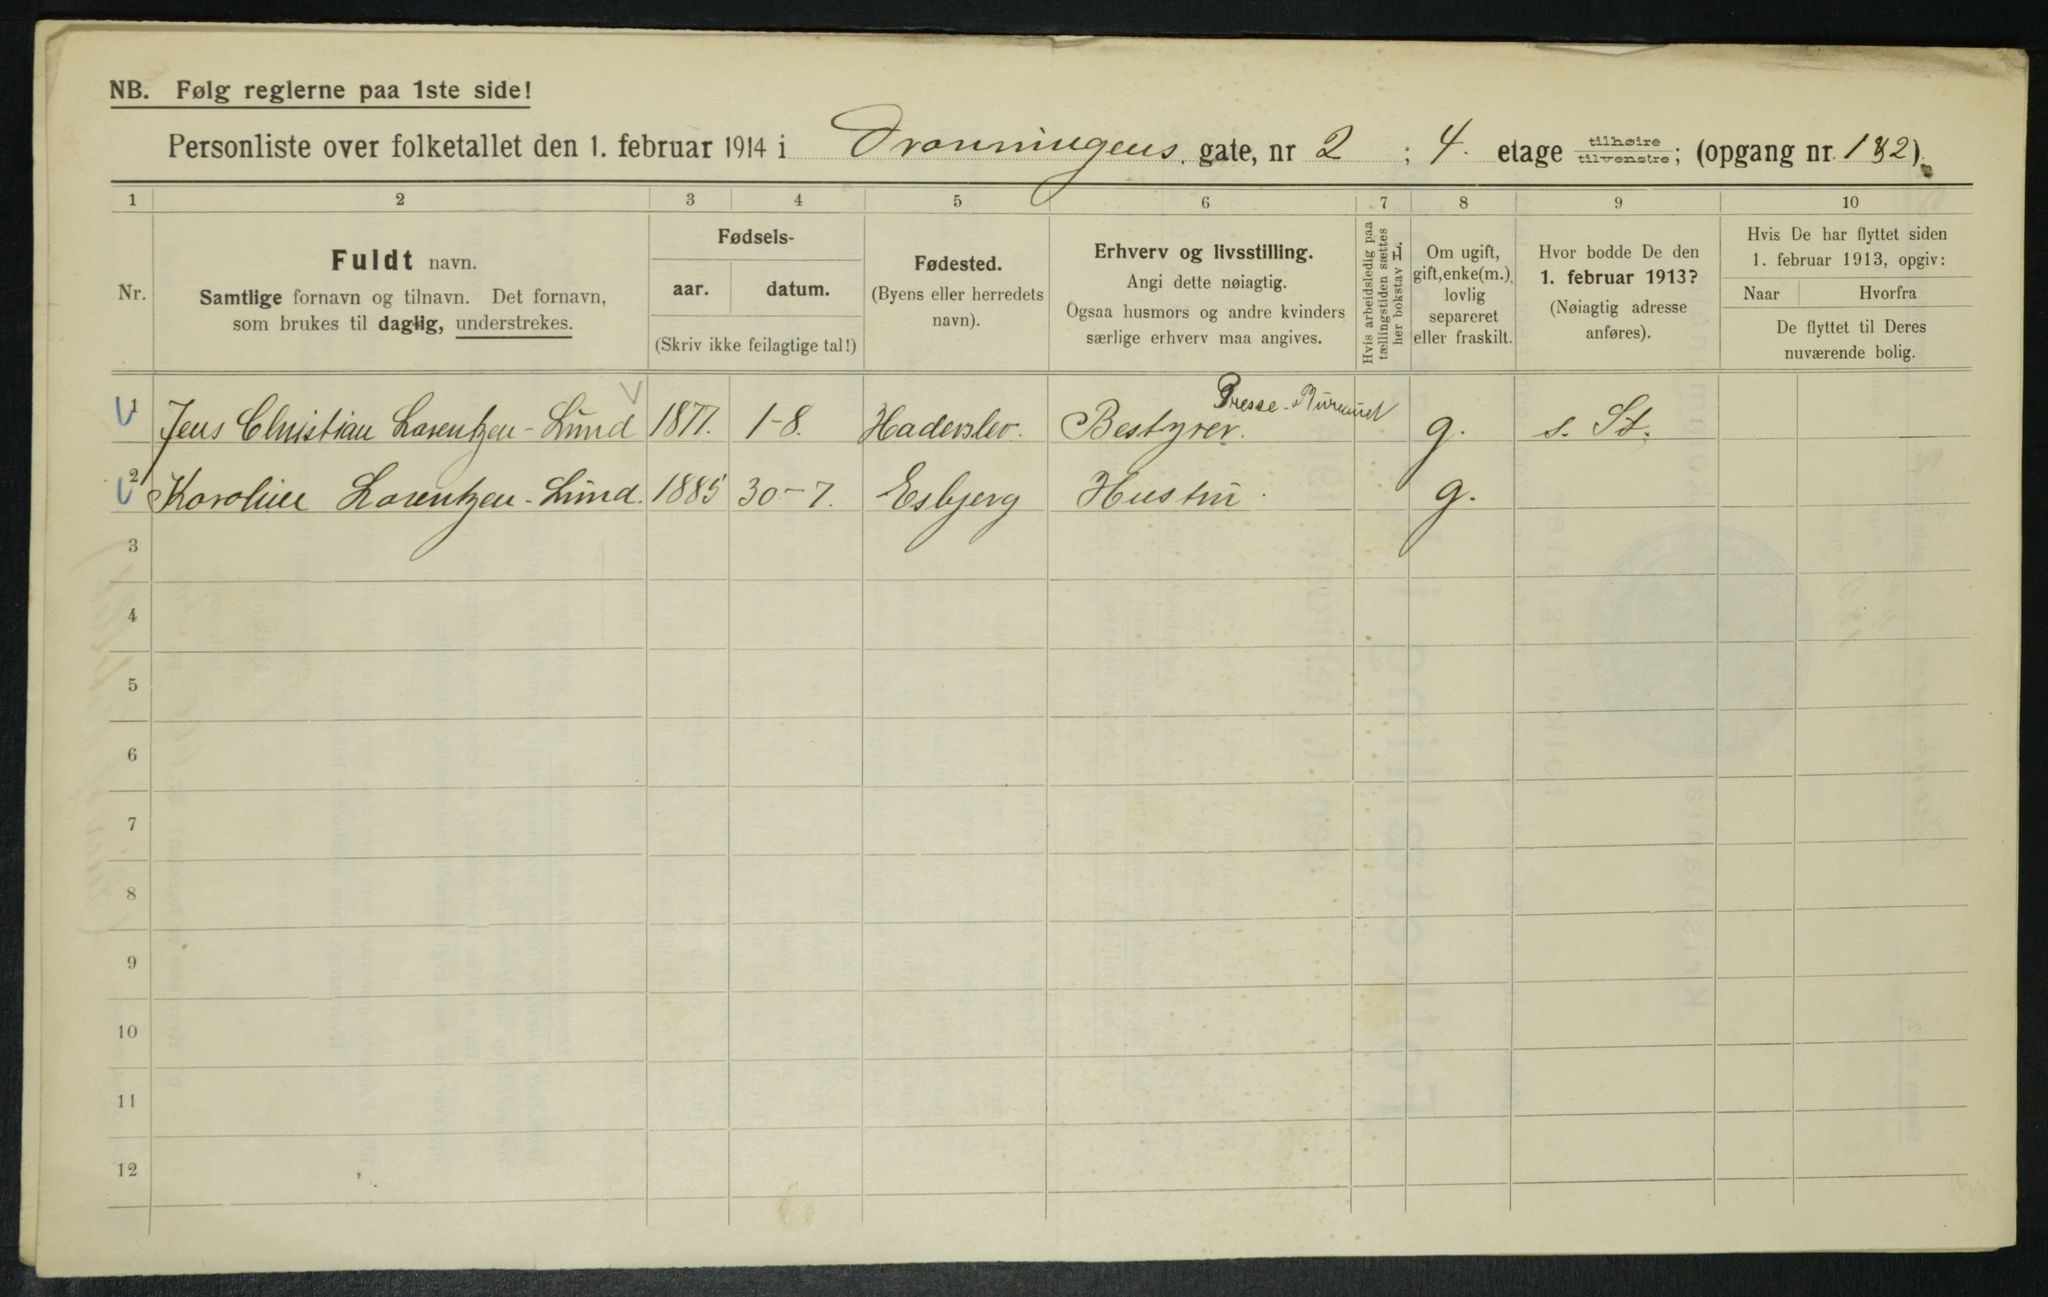 NB. Følg reglerne paa 1ste side!
Personliste over folketallet den 1. februar 1914 i Dronningens gate, nr 2 ; 4. etage tilhøire tilvenstre; (opgang nr. 1 & 2).
1 2 3 4 5 6 7 8 9 10
Nr.
Fuldt navn.
Samtlige fornavn og tilnavn. Det fornavn,
som brukes til daglig, understrekes.
Fødsels-
aar. datum.
(Skriv ikke feilagtige tal!)
Fødested.
(Byens eller herredets
navn).
Erhverv og livsstilling.
Angi dette nøiagtig.
Ogsaa husmors og andre kvinders
særlige erhverv maa angives.
Hvis arbeidsledig paa
tællingstiden sættes
her bokstav L.
Om ugift,
gift, enke(m.),
lovlig
separeret
eller fraskilt.
Hvor bodde De den
1. februar 1913?
(Nøiagtig adresse
anføres).
Hvis De har flyttet siden
1. februar 1913, opgiv:
Naar Hvorfra
De flyttet til Deres
nuværende bolig.
Presse-Bureauet
1 Jens Christian Lorentzen-Lund 1877. 1-8. Haderslev. Bestyrer. g. s. St.
2 Karoline Lorentzen-Lund. 1885 30-7. Esbjerg Hustru. g.
3
4
5
6
7
8
9
10
11
12